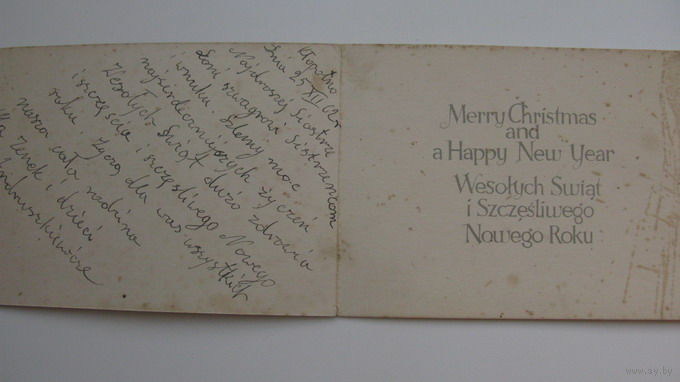 Kłopotno
Dnia 25 XII 02r
Najdroszej Siostrze
Łoni szwagrowi Siostrzenicom
i wnuki. Ślemy moc
najserdeczniejszych życzeń
Wesołych Świąt dużo zdrowia
i szczęścia i szczęśliwego Nowego
roku życzą dla was wszystkich
nasza cała rodzina
Zenek i dzieci
Merry Christmas
and
a Happy New Year
Wesołych Świąt
i Szczęśliwego
Nowego Roku
www.ay.by